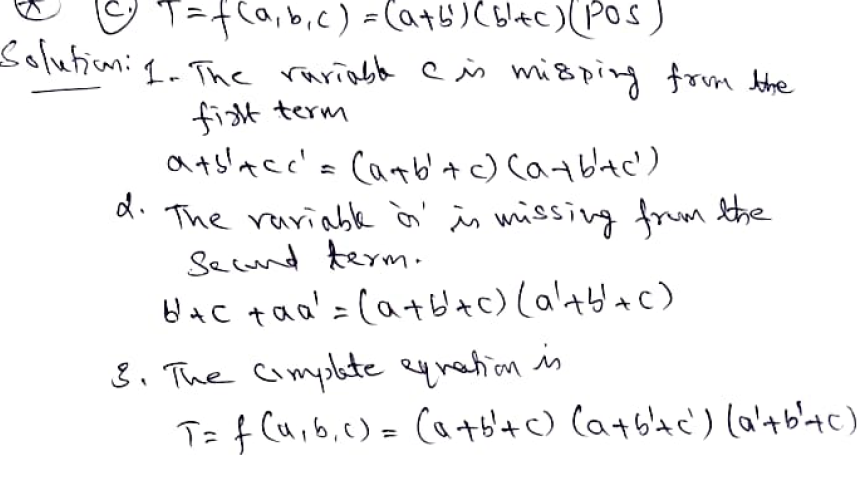 (C) T=f(a,b,c) =(a+b')(b'+c)(POS)
Solution: 1. The variable c is missping from the
first term
a+b'+cc' = (a+b'+c)(a+b'+c')
2. The variable 'a' is missing from the
Second term.
b'+c +aa' = (a+b'+c)(a'+b'+c)
3. The complete equation is
T= f(a,b,c) = (a+b'+c) (a+b'+c') (a'+b'+c)